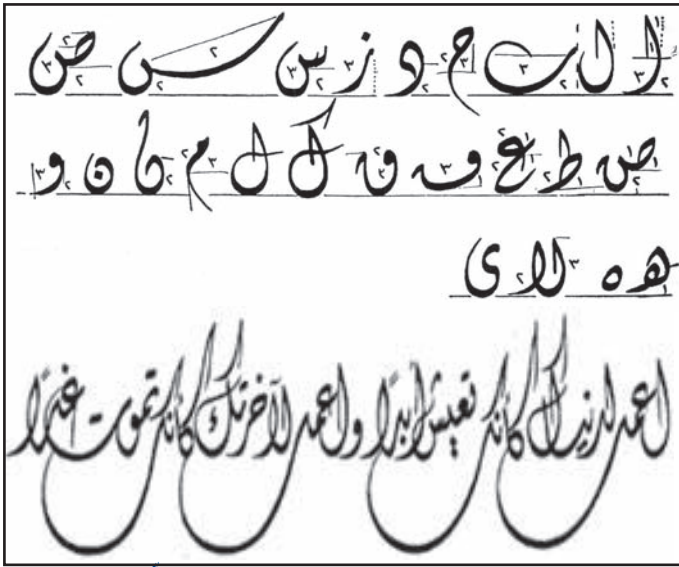 ا ل ب ح د ز س س ص
ص ط ع ف ق ك ل م ن ن و
ه ه لا ى
اعمل لدنياك كأنك تعيش أبدًا واعمل لآخرتك كأنك تموت غدًا